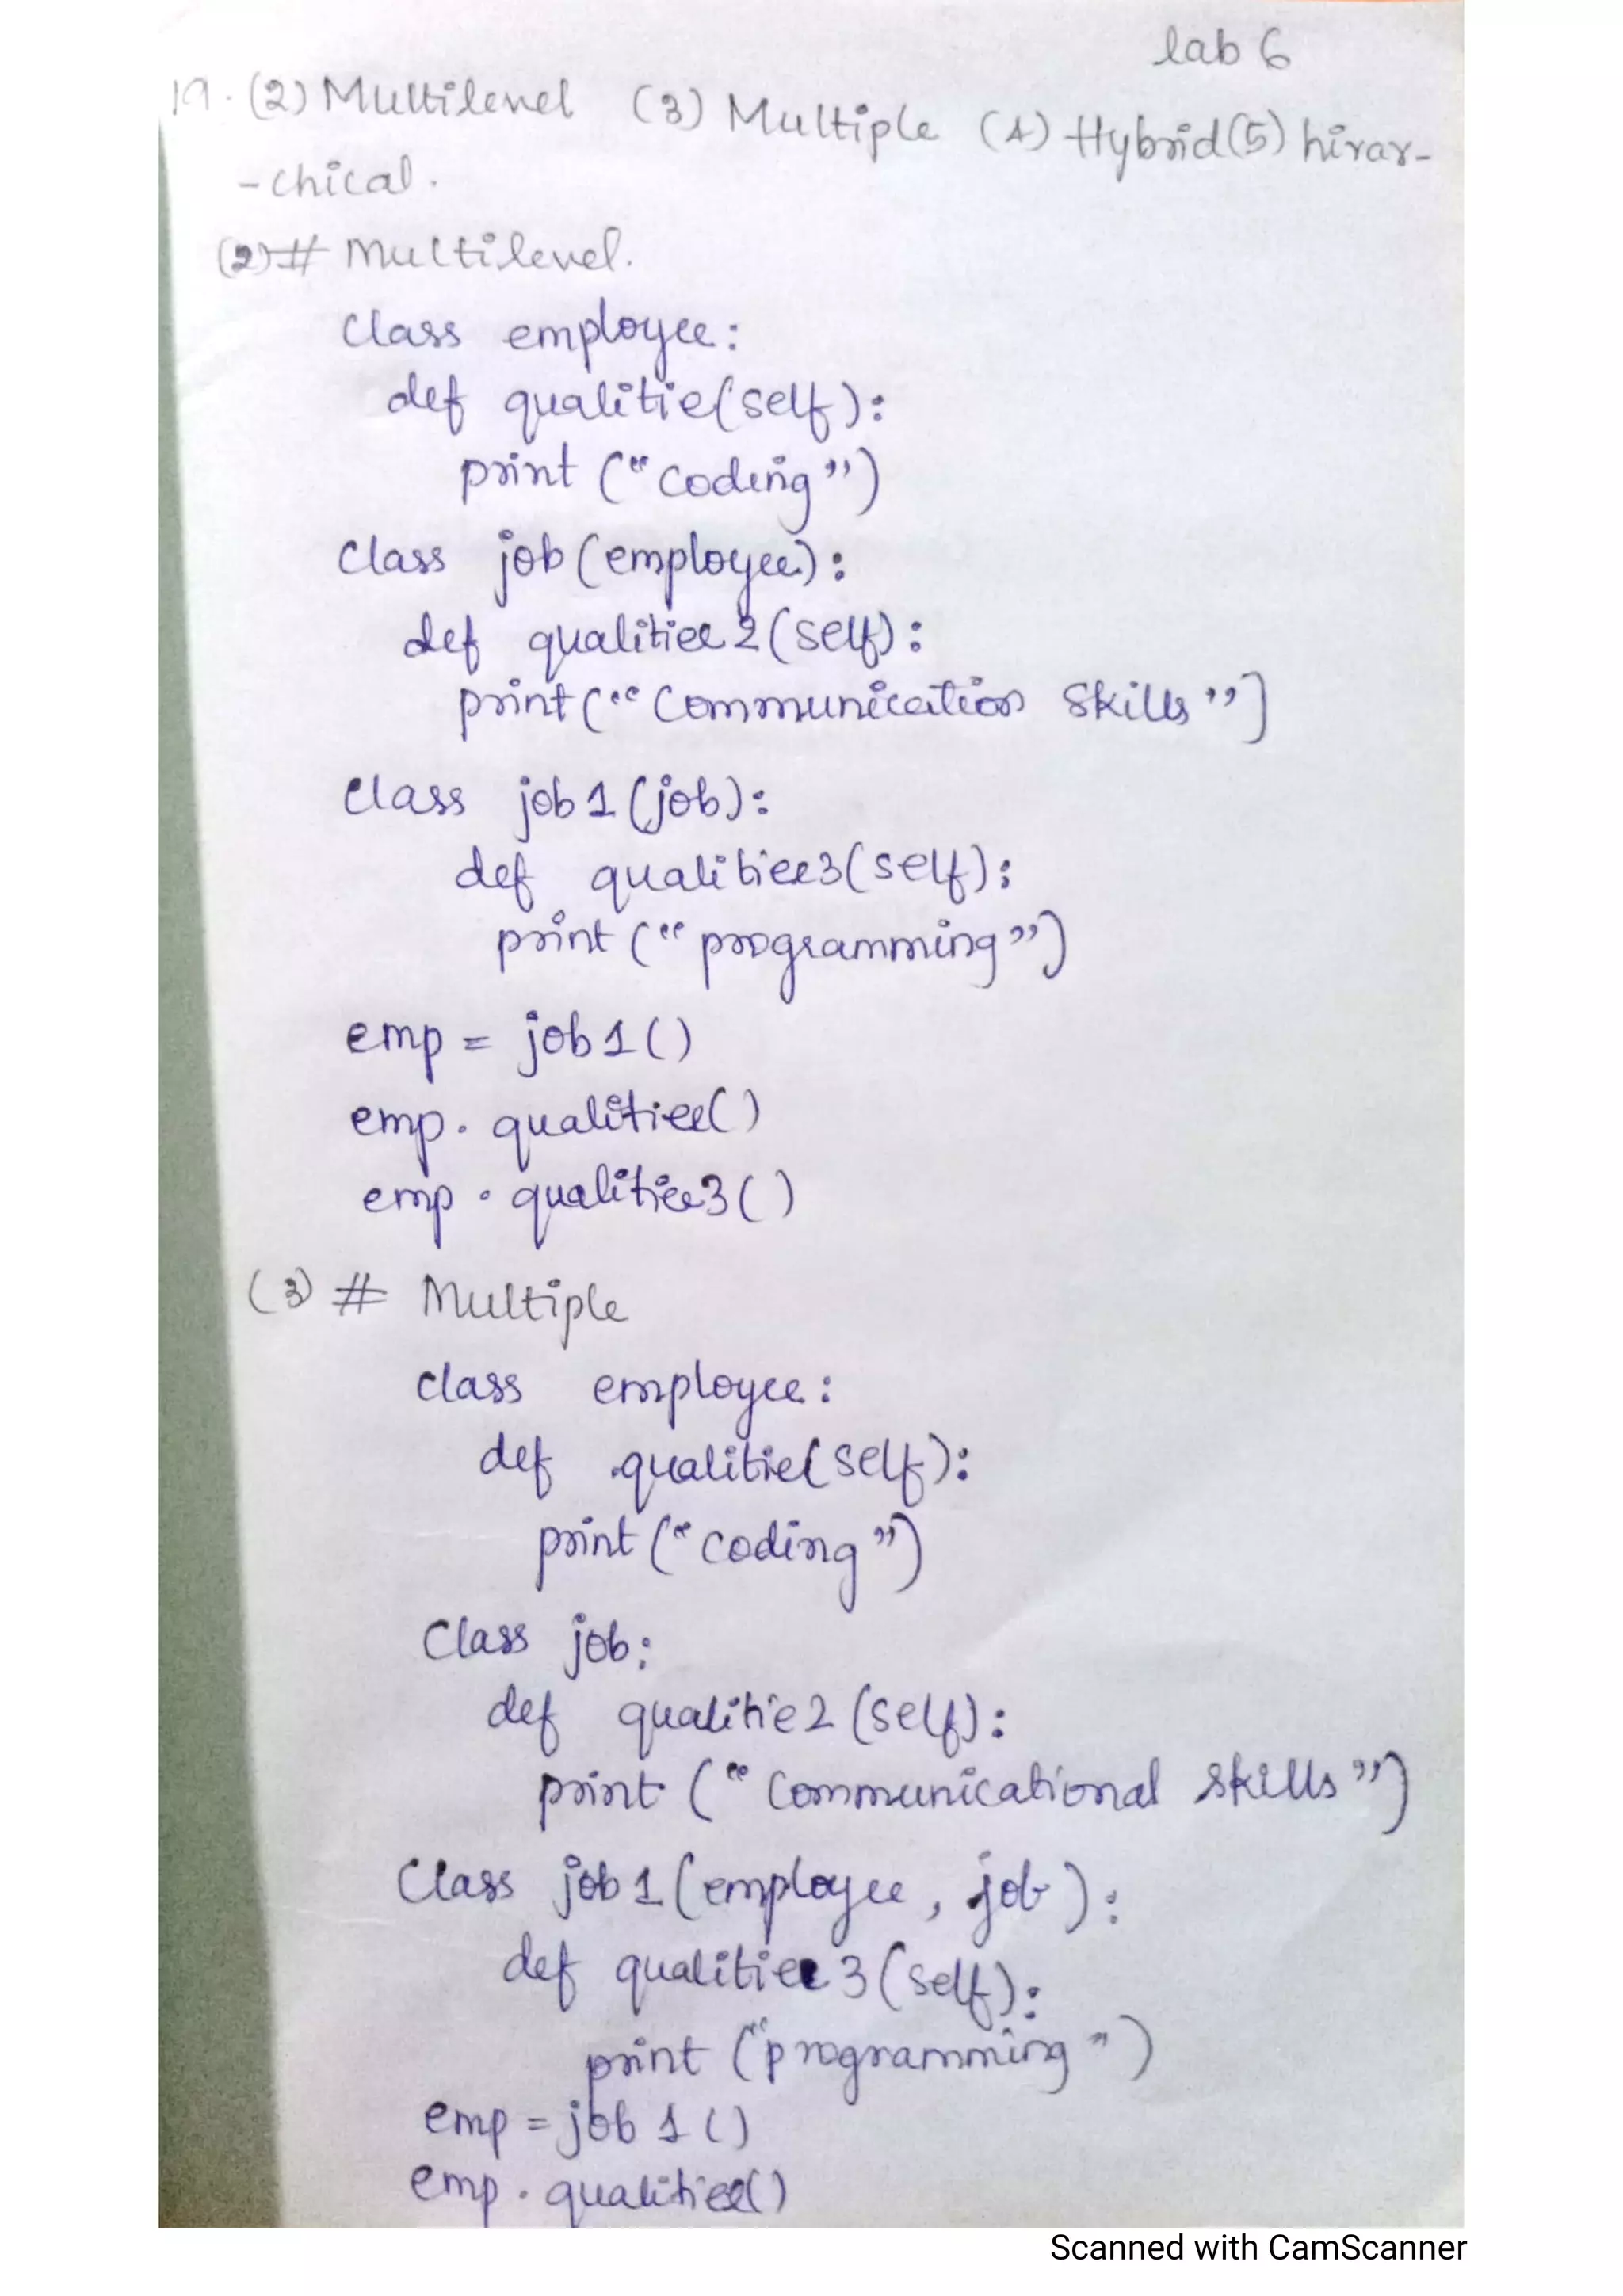 lab 6
19. (2) Multilevel (3) Multiple (4) Hybrid (5) hirar-
-chical.
(2) # Multilevel.
Class employee:
def qualitie(self):
print ("coding")
Class job (employee):
def qualitiee2(self):
print("Communication Skills")
Class job1 (job):
def qualitiee3(self):
print ("programming")
emp = job1()
emp. qualitiee()
emp. qualitiee3()
(3) # Multiple
class employee:
def qualitie(self):
print ("coding")
Class job:
def qualitie2 (self):
print ("Communicational skills")
Class job1 (employee, job):
def qualitiee3 (self):
print ("programming")
emp = job1()
emp. qualitiee()
Scanned with CamScanner